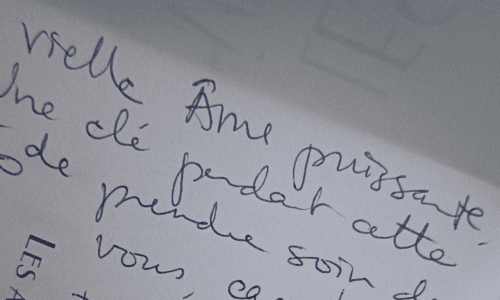 vielle Âme puissante.
Une clé pendat cette
de prendre soin d
vous, ca
LES